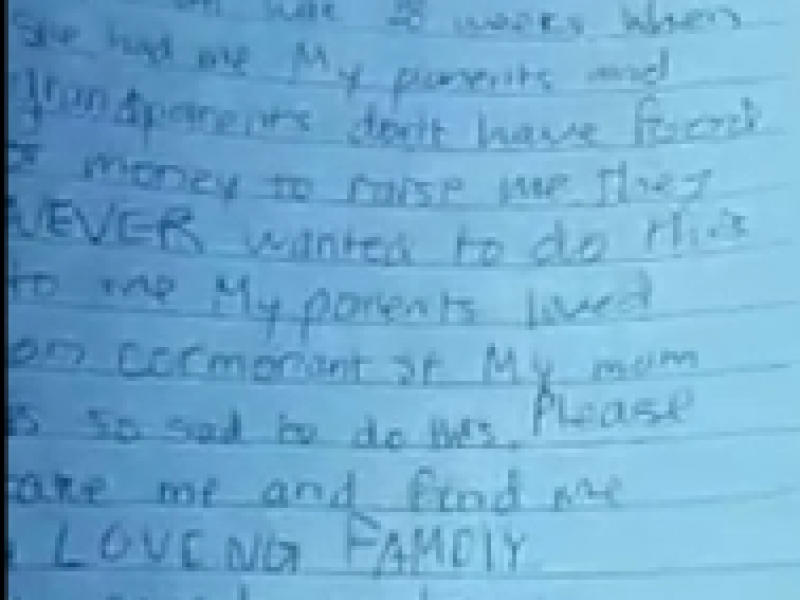 was 28 weeks when
She had me My parents and
grandparents don't have food
or money to raise me they
NEVER wanted to do this
to me My parents lived
on cormorant st My mom
is so sad to do this. Please
take me and find me
LOVENG FAMDIY